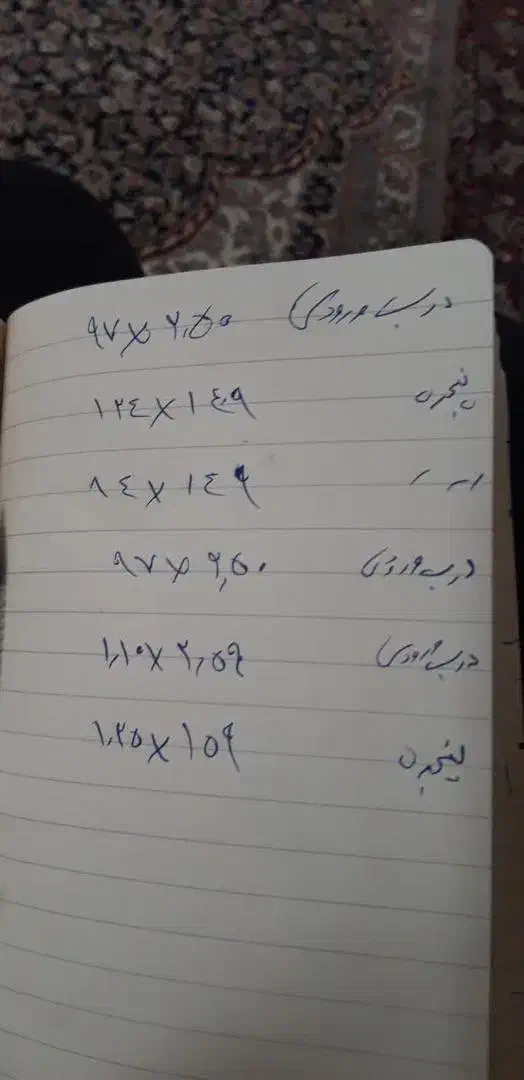 درب ورودی ۹۷×۲٫۵۰
پنجره ۱۲۴×۱۴۹
۸۴×۱۴۹
درب ورودی ۹۷×۲٫۵۰
درب ورودی ۱٫۱۰×۲٫۵۹
پنجره ۱٫۲۵×۱۵۹